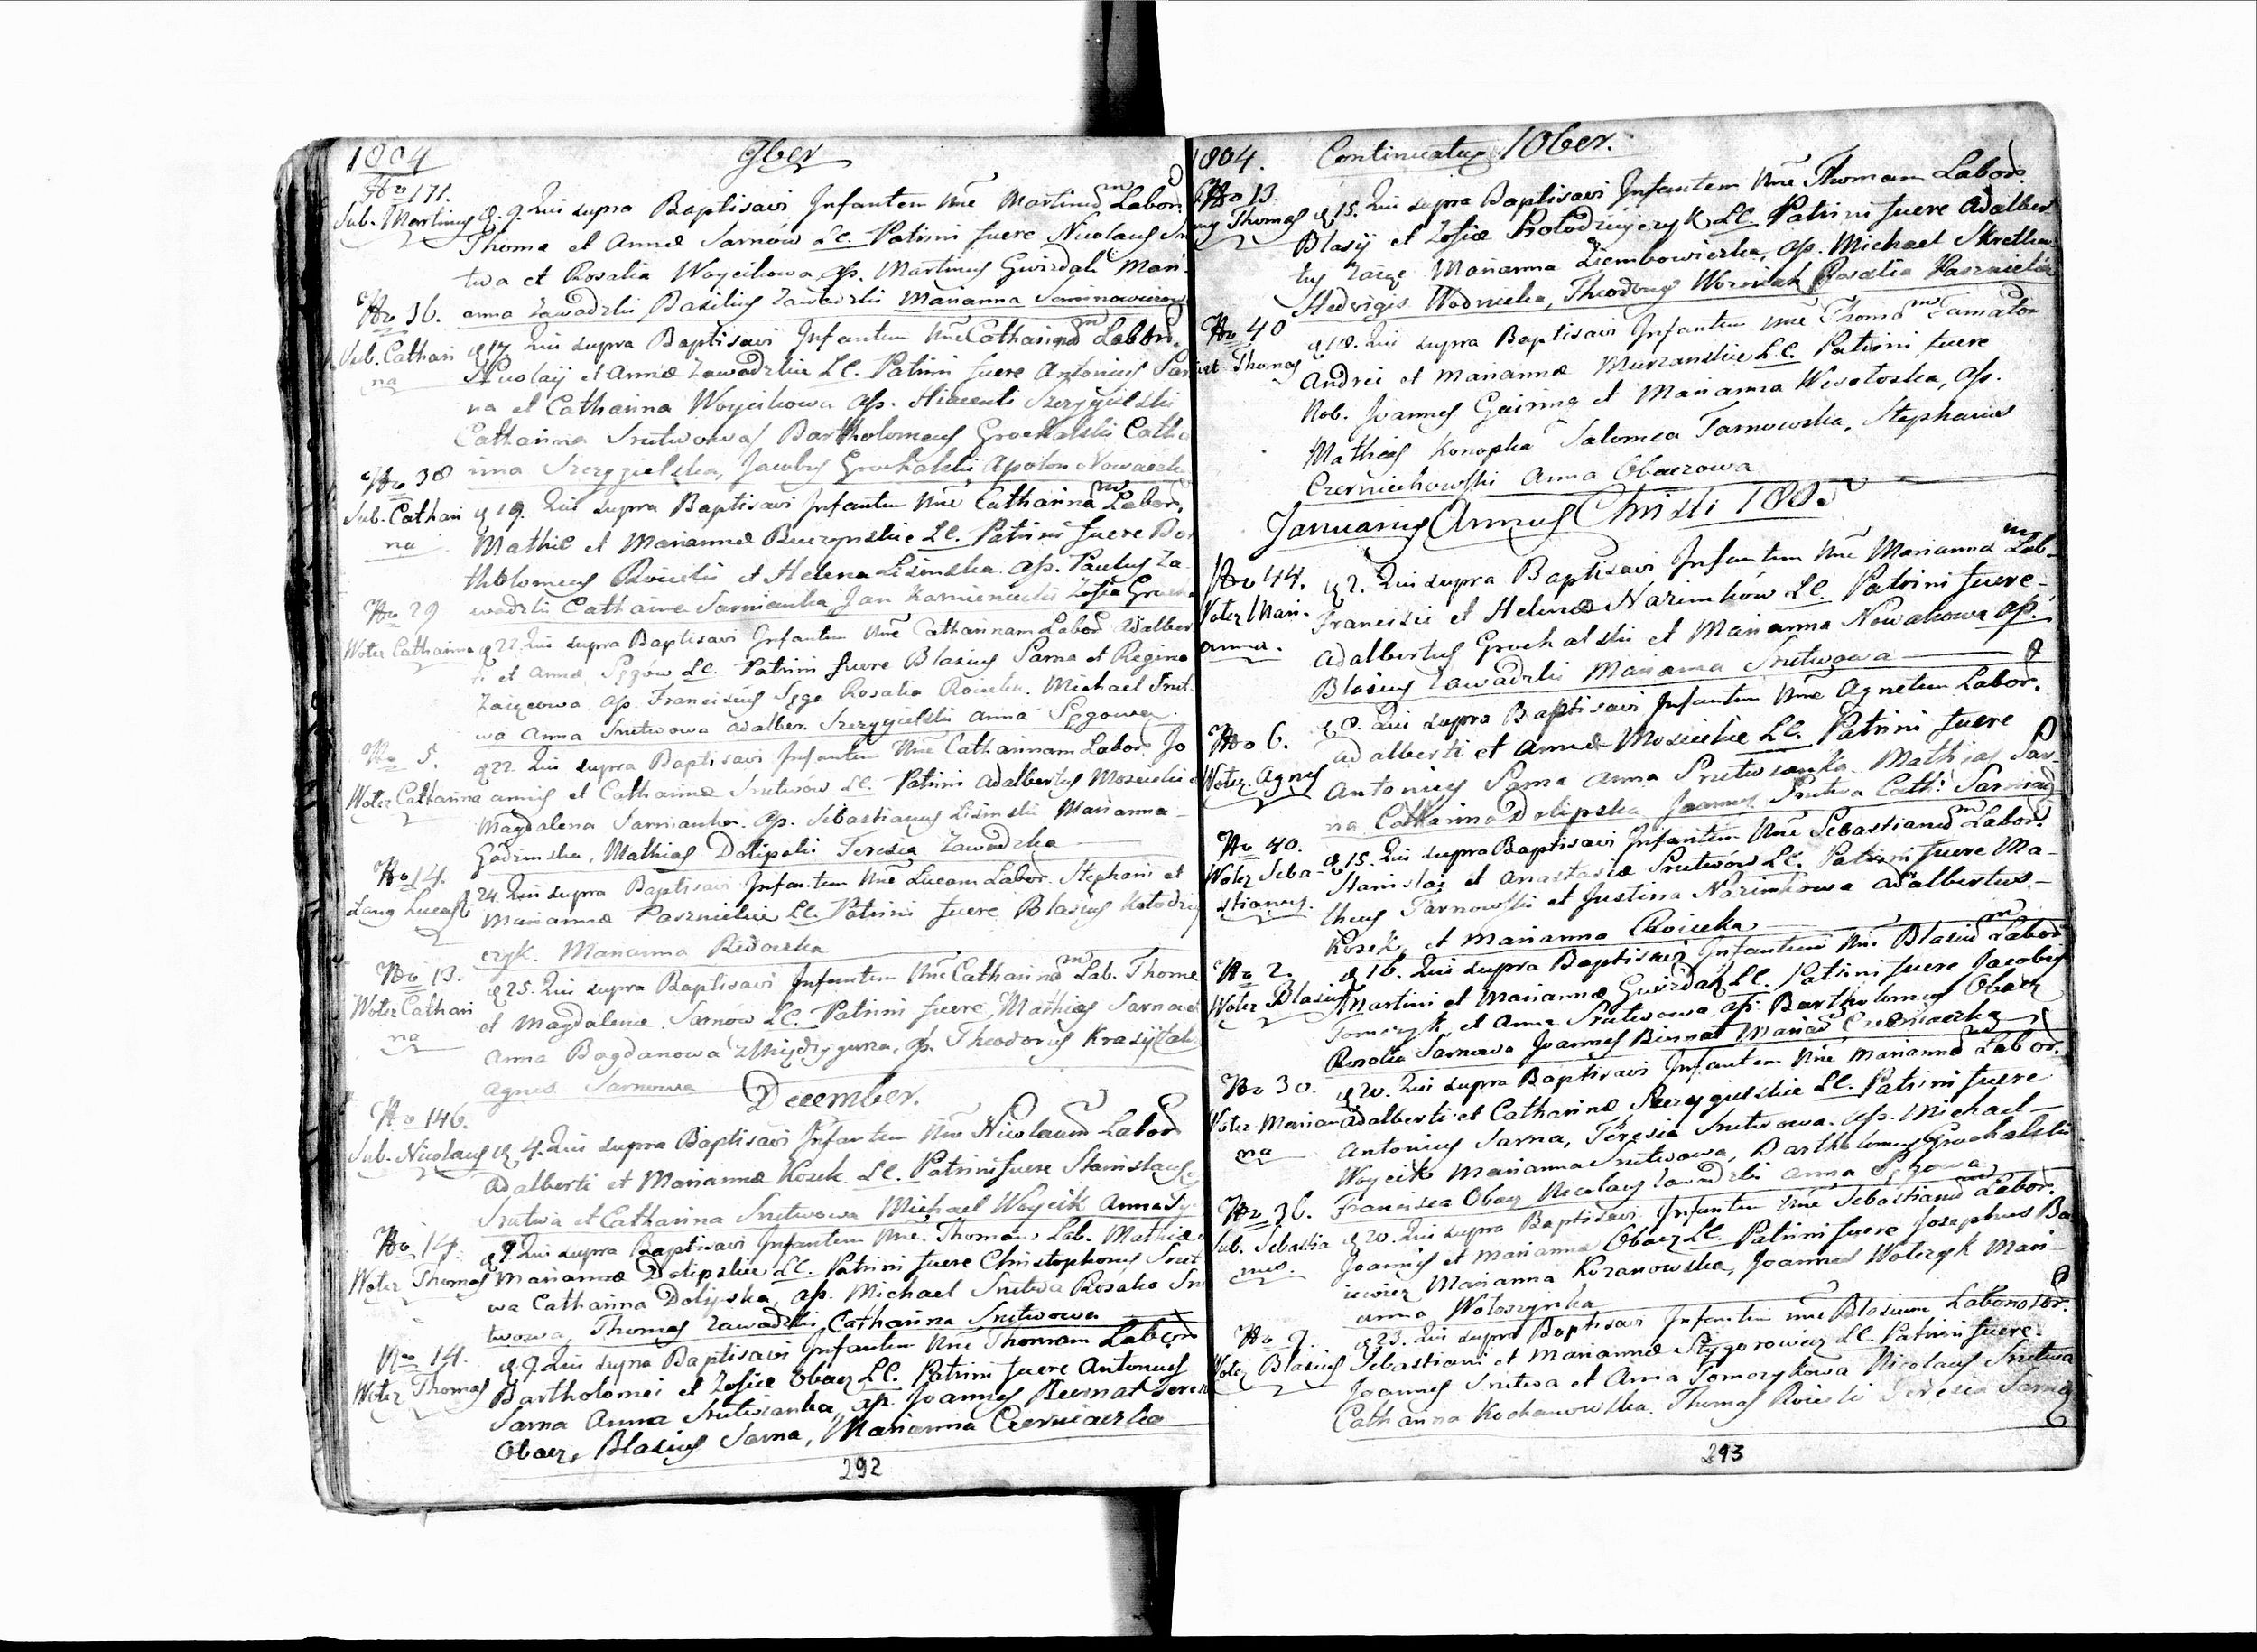 1804 9ber
No 171.
Sub. Martinus d. 9. Qui supra Baptisavi Infantem Nne Martinum Labor.
Thoma et Annæ Sarnów LC. Patrini fuere Nicolaus
twa et Rosalia Woycikowa ap. Martinus Gwizdak Mari
No 36. anna Zawadzki Basilius Zawadzki Marianna
Sub. Cathari d 17 Qui supra Baptisavi Infantem Nne Catharinam Labor.
na Nicolaij et Annæ Zawadzkie LC. Patrini fuere Antonius Sar
na et Catharina Woycikowa ap. Szczygielski
Catharina Srutwowa Bartholomeus Grochalski Catha
No 38 rina Szczygielska, Jacobus Grochalski
Sub. Cathari d 19. Qui supra Baptisavi Infantem Nne Catharinam Labor.
na Mathie et Mariannæ Buczynskie LC. Patrini fuere Bar
tholomeus Roicki et Helena Lisinska ap. Paulus Za
No 29 wadzki Catharina Sarnianka Jan Kamieniecki Zofia
Woter Catharina d 22 Qui supra Baptisavi Infantem Nne Catharinam Labor Adalber
ti et Annæ Sęgów LC. Patrini fuere Blasius Sarna et Regina
Zaięcowa ap. Franciscus Sęga Rosalia Roicka. Michael Srut
wa Anna Srutwowa Adalber. Szczygielski Anna Sęgowa
No 5. d 22. Qui supra Baptisavi Infantem Nne Catharinam Labor. Jo
Woter Catharina annis et Catharinæ Srutwów LC. Patrini Adalbertus Mosiecki
Magdalena Sarnianka ap. Sebastianus Lisinski Marianna
Godzinska, Mathias Dolipski Teresia Zawadzka
No 14. d 24. Qui supra Baptisavi Infantem Nne Lucam Labor. Stephani et
Lucas Mariannæ Pasznickie LC. Patrini fuere Blasius Kołodziy
czyk. Marianna
No 13. d 25. Qui supra Baptisavi Infantem Nne Catharinam Lab. Thome
Woter Cathari et Magdalenæ Sarnow LC. Patrini fuere Mathias Sarna et
na Anna Bogdanowa ap. Theodorus
Agnes Sarnowa
December.
No 146.
Sub. Nicolaus d. 4. Qui supra Baptisavi Infantem Nne Nicolaum Labor
Adalberti et Mariannæ Kozek LC. Patrini fuere Stanislaus
Srutwa et Catharina Srutwowa Michael Woycik Anna
No 14. d 9. Qui supra Baptisavi Infantem Nne. Thomam Lab. Mathiæ
Woter Thomas Mariannæ Dolipskie LC. Patrini fuere Christophorus Srut
wa Catharina Dolipska, ap. Michael Srutwa Rosalia Sru
twowa, Thomas Zawadzki, Catharina Srutwowa
No 14. d 9. Qui supra Baptisavi Infantem Nne Thomam Labor
Woter Thomas Bartholomei et Zofiæ Obacz LC. Patrini fuere Antonius
Sarna Anna Srutwianka, ap. Joannes Biernat
Obacz, Blasius Sarna, Marianna Czerniaczka
292
1804. Continuatus 10ber.
No 13. d 15. Qui supra Baptisavi Infantem Nne Thomam Labor.
Thomas Blasij et Zofiæ Kołodziyczyk LC. Patrini fuere Adalber
tus Zaięc Marianna Ziembowiczka, ap. Michael
Hedvigis Wodnicka, Theodorus Wozniak Rosalia
No 40 d 18. Qui supra Baptisavi Infantem Nne Thomam
Thomas Andrei et Mariannæ Murzanskie LC. Patrini fuere
Nob. Joannes et Marianna Wesołoska, ap.
Mathias Konopka Salomea Tarnowska, Stephanus
Czerniechowski Anna Obaczowa
Januarius Annus Christi 1805
No 44. d 2. Qui supra Baptisavi Infantem Nne Mariannam Lab-
Woter Mari- Francisci et Helenæ Nazimków LC. Patrini fuere
anna. Adalbertus Grochalski et Marianna Nowakowa ap.
Blasius Zawadzki Marianna Srutwowa
No 6. d. 8. Qui supra Baptisavi Infantem Nne Agnetem Labor.
Woter. Agnes Adalberti et Annæ Mosieckie LC. Patrini fuere
Antonius Sarna Anna Srutwianka. Mathias Sar-
na Catharina Dolipska Joannes Srutwa Cath.
No 40. d 15. Qui supra Baptisavi Infantem Nne Sebastianum Labor.
Woter Seba- Stanislai et Anastasiæ Srutwów LC. Patrini fuere Ma-
stianus. theus Tarnowski et Justina Nazimkowa Adalbertus
Kozek, et Marianna Roicka
No 2. d 16. Qui supra Baptisavi Infantem Nne Blasium Labor
Woter Blasius Martini et Mariannæ Gwizdak LC. Patrini fuere Jacobus
Tomczyk et Anna Srutwowa ap. Bartholomeus Obacz
Rosalia Sarnowa Joannes Biernat Maria Czerniaczka
No 30. d 20. Qui supra Baptisavi Infantem Nne Mariannam Labor.
Woter Marian Adalberti et Catharinæ Szczygielskie LC. Patrini fuere
na Antonius Sarna, Teresia Srutwowa. ap. Michael
Woycik Marianna Srutwowa, Bartholomeus Grochalski
Francisca Obacz Nicolaus Zawadzki Anna Sęgowa
No 36. d 20. Qui supra Baptisavi Infantem Nne Sebastianum Labor.
Sub. Sebastia Joannis et Mariannæ Obacz LC. Patrini fuere Josephus Ba
nus. iewicz Marianna Kozanowska, Joannes Wołczyk Mari-
anna Wołoszynka
No 7. d 23. Qui supra Baptisavi Infantem Nne Blasium Laborator.
Woter Blasius Sebastiani et Mariannæ LC. Patrini fuere
Joannes Srutwa et Anna Tomczykowa Nicolaus Srutwa
Catharina Kochanowska. Thomas Roicki Teresia
293